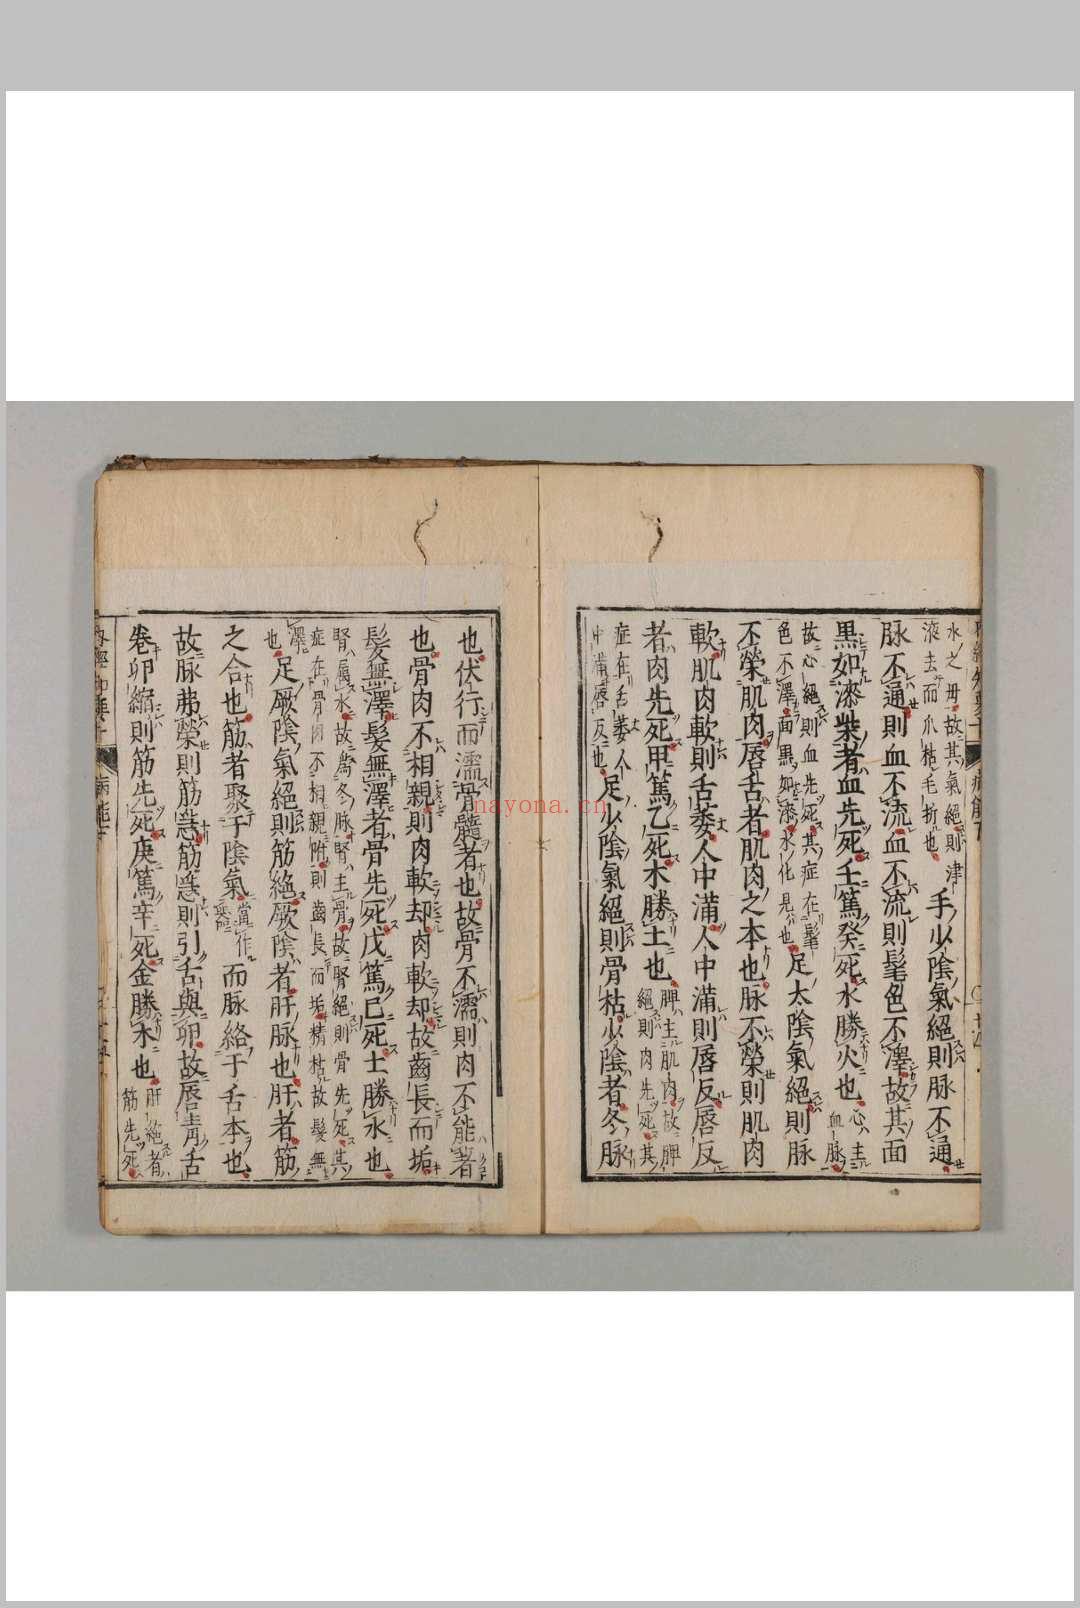 水之母故其氣絕則津
液去而爪枯毛折也
手少陰氣絕則脉不通
脉不通則血不流血不流則髦色不澤故其面
黑如漆柴者血先死壬篤癸死水勝火也
心主血脉
故心絕則血先死其症在髦
色不澤面黑如漆水化見也
足太陰氣絕則脉
不榮肌肉唇舌者肌肉之本也脉不榮則肌肉
軟肌肉軟則舌萎人中滿人中滿則唇反唇反
者肉先死甲篤乙死木勝土也
脾主肌肉故脾
絕則肉先死其
症在舌萎人
中滿唇反也
足少陰氣絕則骨枯少陰者冬脉
也伏行而濡骨髓者也故骨不濡則肉不能著
也骨肉不相親則肉軟却肉軟却故齒長而垢
髮無澤髮無澤者骨先死戊篤巳死土勝水也
腎屬水故為冬脉腎主骨故腎絕則骨先死其
症在骨肉不相親附則齒長而垢精枯故髮無
澤
也
足厥陰氣絕則筋絕厥陰者肝脉也肝者筋
之合也筋者聚于陰氣
當作
而脉絡于舌本也
故脉弗榮則筋急筋急則引舌與卵故唇青舌
卷卵縮則筋先死庚篤辛死金勝木也
肝絕者
筋先死
nayona.cn